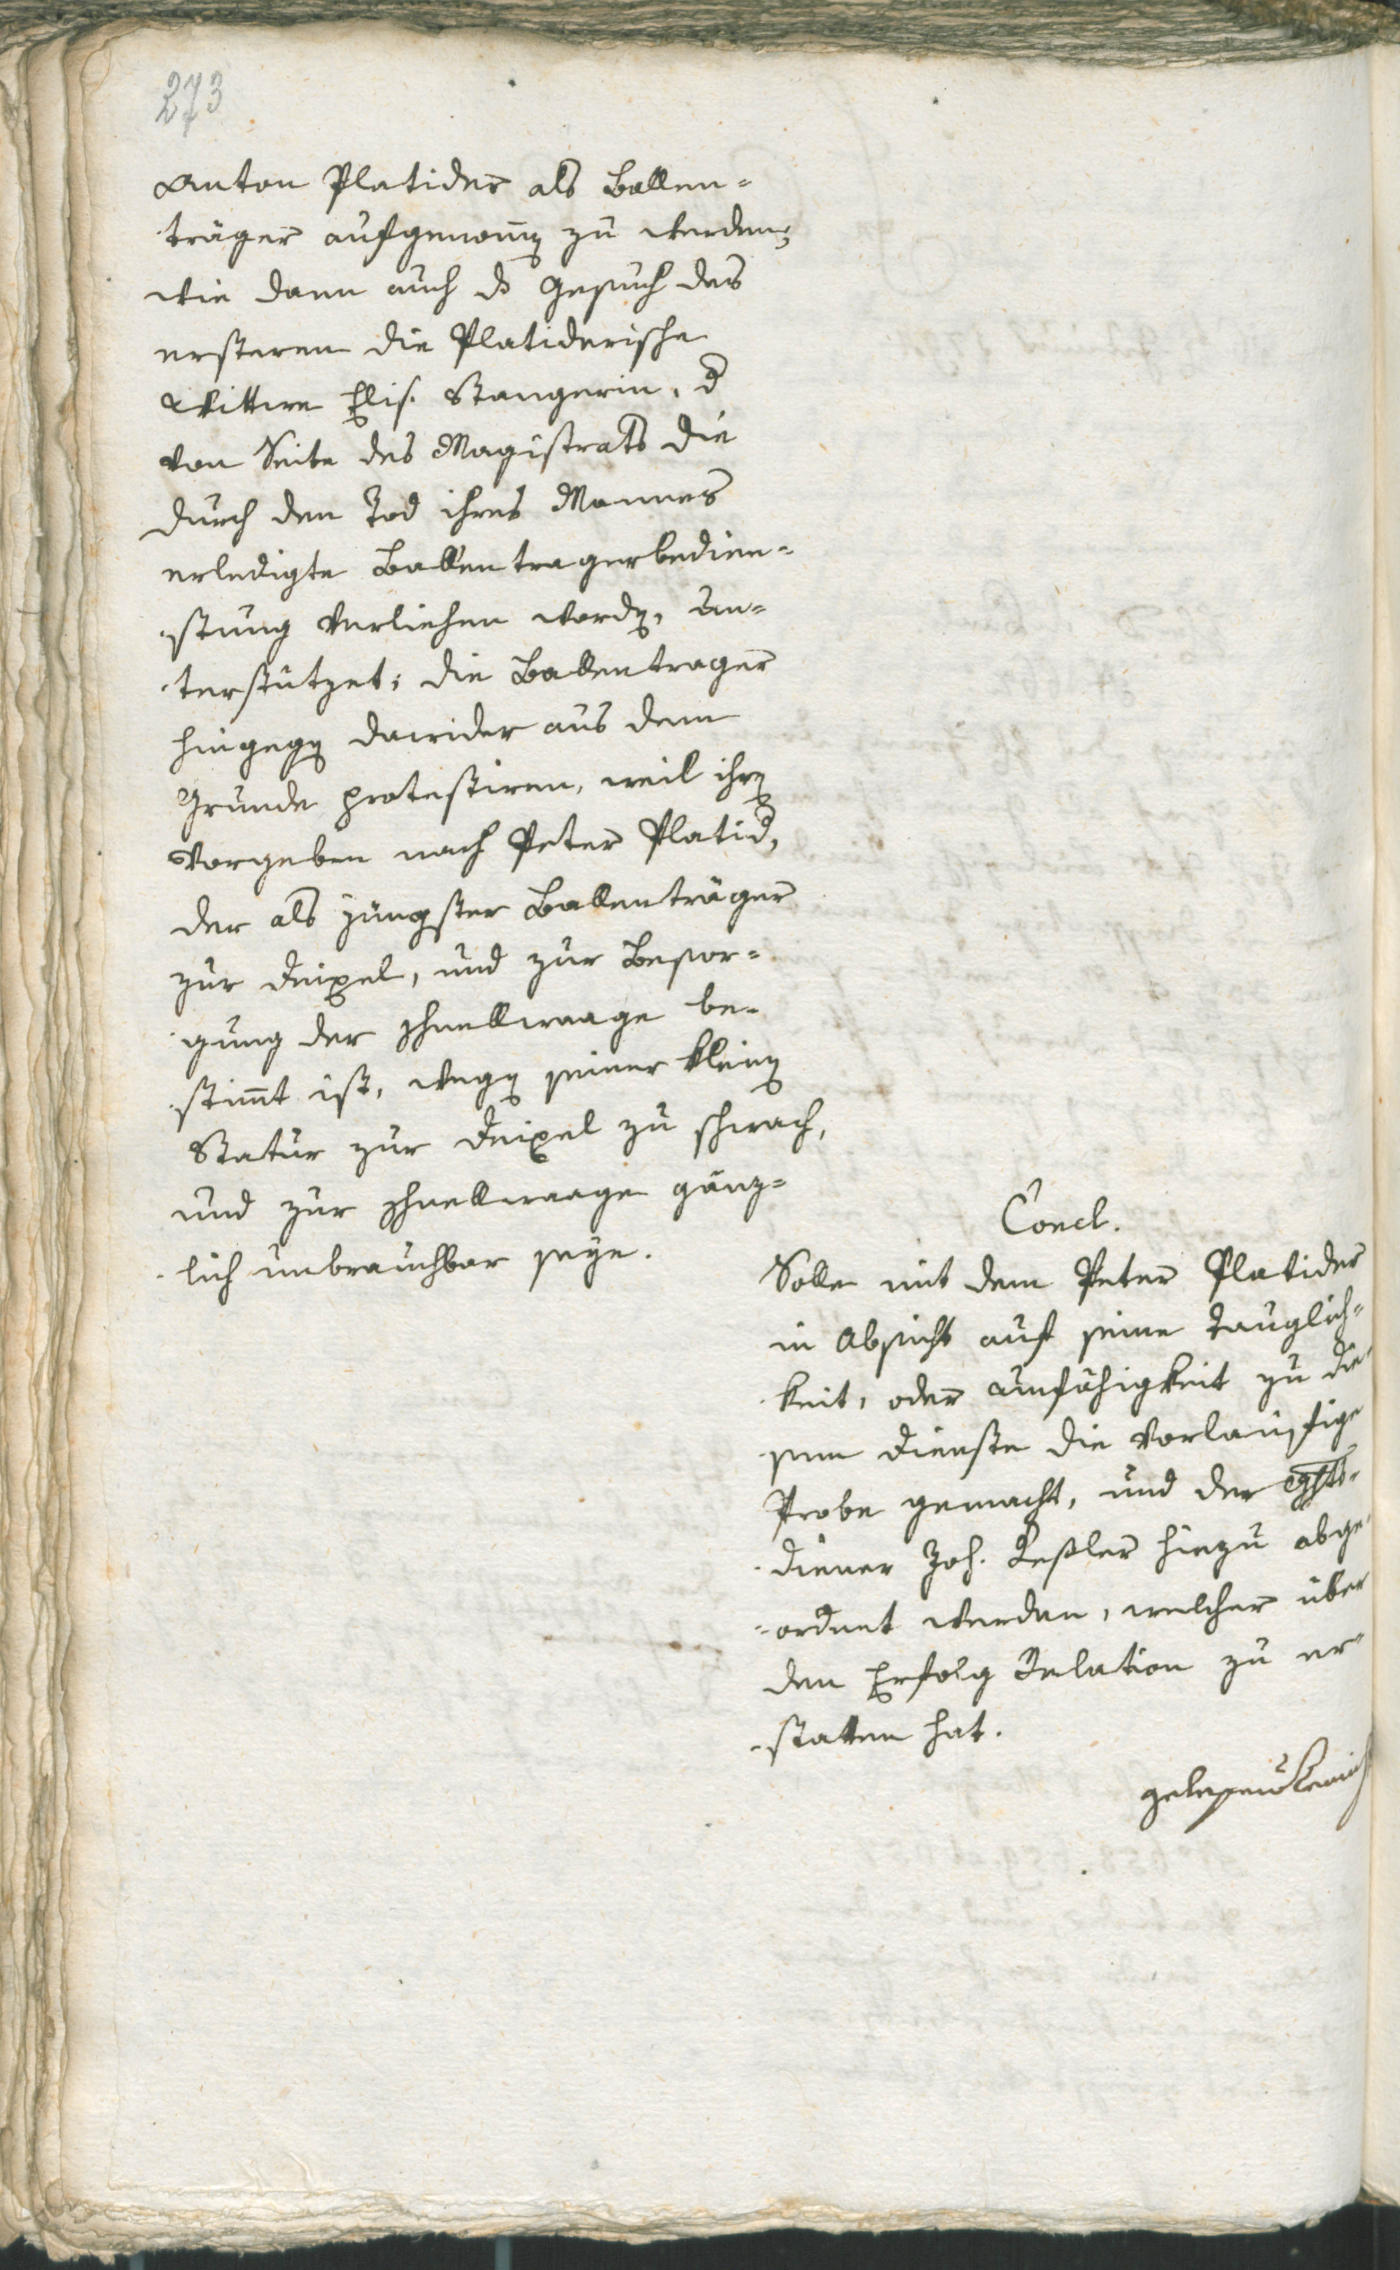 273
Anton Platider als Ballen=
träger aufgenom̄en zu werden;
wie dann auch ds Gesuch des
ersteren die Platiderische
Wittwe Elis. Stangerin, d
von Seite des Magistrats die
durch den Tod ihres Mannes
erledigte Ballentragerbedien=
stung verliehen worden, un=
terstützet; die Ballentrager
hingegen dawider aus dem
Grunde protestiren, weil ihrem
Vorgeben nach Peter Platid,
der als jüngster Ballenträger
zur Deixel, und zur Besor=
gung der Schnellwaage be=
stim̄t ist, wegen seiner kleinen
Statur zur Deixel zu schwach,
und zur Schnellwaage gänz=
lich unbrauchbar seye.
Concl.
Solle mit dem Peter Platider
in Absicht auf seine Tauglich=
keit, oder Unfähigkeit zu die=
sem Dienste die vorläufige
Probe gemacht, und der
diener Joh. Keßler hiezu abge=
ordnet werden, welcher über
den Erfolg Relation zu er=
statten hat.